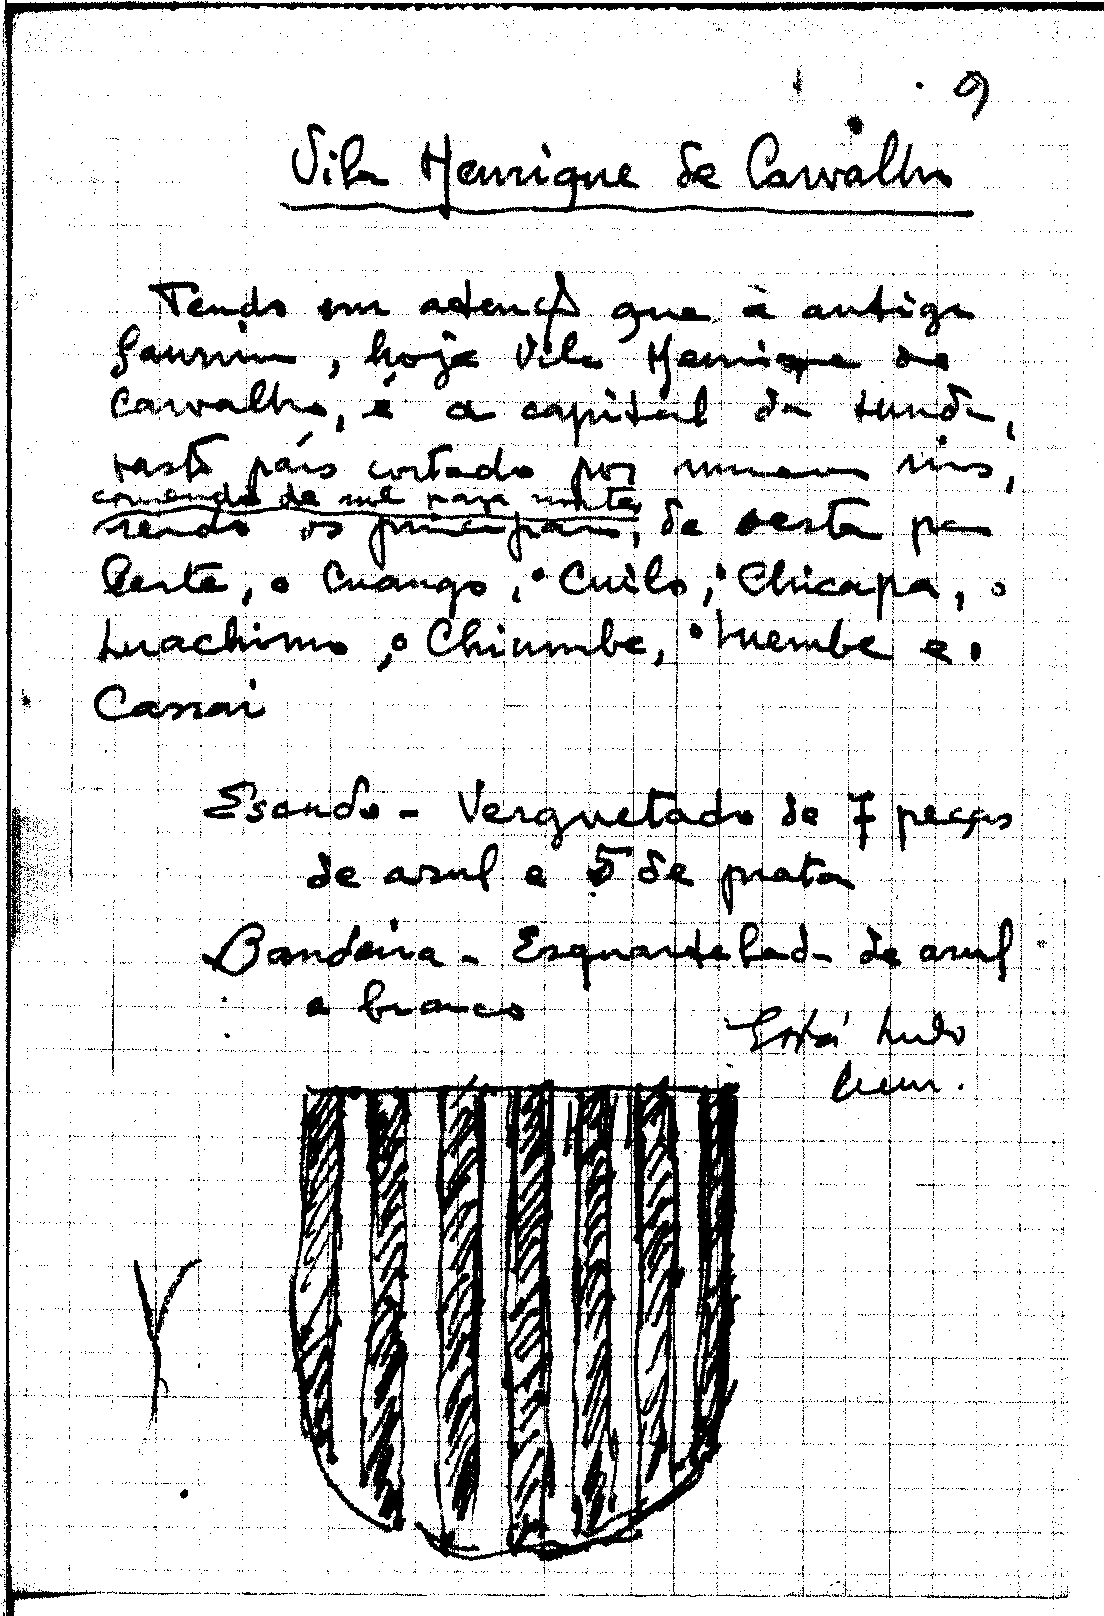 9
Vila Henrique de Carvalho
Tendo em atenção que à antiga
Saurimo, hoje Vila Henrique de
Carvalho, é a capital da Lunda,
vasto país cortado por numerosos rios,
correndo de sul para norte,
sendo os principais, de oeste para
leste, o Cuango, o Cuilo, o Chicapa, o
Luachimo, o Chiumbe, o Luembe e o
Cassai
Escudo - Verguetado de 7 peças
de azul e 5 de prata
Bandeira - Esquartelada de azul
e branco
Está tudo
bem.